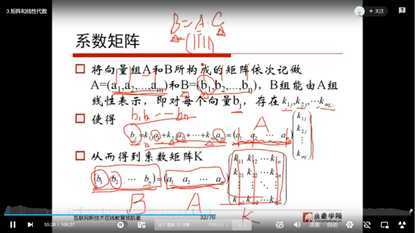 3.矩阵和线性代数
+ 关注
B = A C
系数矩阵
将向量组A和B所构成的矩阵依次记做
A=(a₁,a₂,…,aₘ)和B=(b₁,b₂,…bₙ)，B组能由A组
线性表示，即对每个向量bⱼ，存在k₁ⱼ,k₂ⱼ,…kₘⱼ
使得
b₁ b₂ -- bₙ
A
bⱼ = k₁ⱼa₁ + k₂ⱼa₂ + … + kₘⱼaₘ = (a₁ a₂ … aₘ)
k₁ⱼ
k₂ⱼ
⋮
kₘⱼ
从而得到系数矩阵K
(b₁ b₂ … bₙ) = (a₁ a₂ … aₘ)
k₁₁ k₁₂ … k₁ₙ
k₂₁ k₂₂ … k₂ₙ
⋮ ⋮ ⋱ ⋮
kₘ₁ kₘ₂ … kₘₙ
B A K
互联网新技术在线教育领航者
32/70
自动
倍速